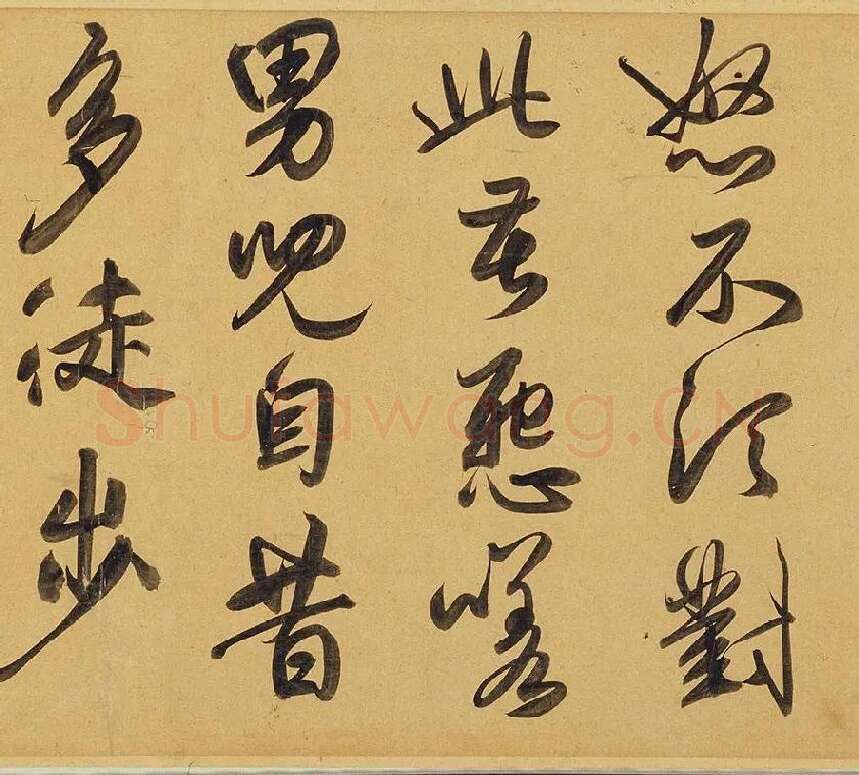 怒不須對
此苦怨嗟
男兒自昔
多徒步
Shufawang.CN